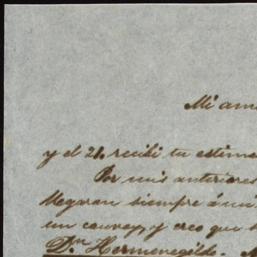 Mi am
y el 21, recibi tu estima
Por mis anteriores
llegaran siempre á mi
un y creo que
Dn Hermenegildo.